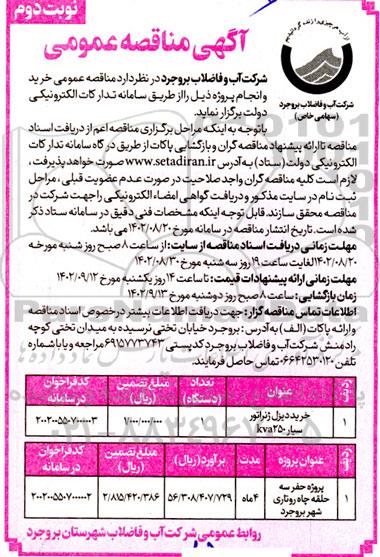 نوبت دوم
آگهی مناقصه عمومی
شرکت آب و فاضلاب بروجرد
(سهامی خاص)
شرکت آب و فاضلاب بروجرد در نظر دارد مناقصه عمومی خرید
و انجام پروژه ذیل را از طریق سامانه تدارکات الکترونیکی
دولت برگزار نماید.
باتوجه به اینکه مراحل برگزاری مناقصه اعم از دریافت اسناد
مناقصه تا ارائه پیشنهاد مناقصه گران و بازگشایی پاکات از طریق درگاه سامانه تدارکات
الکترونیکی دولت (ستاد) به آدرس www.setadiran.ir صورت خواهد پذیرفت،
لازم است کلیه مناقصه گران واجد صلاحیت در صورت عدم عضویت قبلی، مراحل
ثبت نام در سایت مذکور و دریافت گواهی امضاء الکترونیکی را جهت شرکت در
مناقصه محقق سازند. قابل توجه اینکه مشخصات فنی دقیق در سامانه ستاد ذکر
شده است. تاریخ انتشار مناقصه در سامانه مورخ ۱۴۰۲/۰۸/۲۰ می باشد.
مهلت زمانی دریافت اسناد مناقصه از سایت: از ساعت ۸ صبح روز شنبه مورخه
۱۴۰۲/۰۸/۲۰ لغایت ساعت ۱۹ روز سه شنبه مورخ ۱۴۰۲/۰۸/۳۰
مهلت زمانی ارائه پیشنهادات قیمت: تا ساعت ۱۴ روز یکشنبه مورخ ۱۴۰۲/۰۹/۱۲
زمان بازگشایی: ساعت ۸ صبح روز دوشنبه مورخ ۱۴۰۲/۹/۱۳
اطلاعات تماس مناقصه گزار: جهت دریافت اطلاعات بیشتر در خصوص اسناد مناقصه
و ارائه پاکات (الف) به آدرس: بروجرد خیابان تختی نرسیده به میدان تختی کوچه
رادمنش شرکت آب و فاضلاب بروجرد کدپستی ۶۹۱۵۷۷۳۷۴۳ مراجعه و یا با شماره
تلفن ۰۶۶۴۲۵۳۰۱۲۰ تماس حاصل فرمایند.
ردیف عنوان تعداد (دستگاه) مبلغ تضمین (ریال) کدفراخوان در سامانه
۱ خرید دیزل ژنراتور سیار ۲۵۰kva ۱ ۱/۰۰۰/۰۰۰/۰۰۰ ۲۰۰۲۰۰۵۵۰۷۰۰۰۰۰۳
ردیف عنوان پروژه مدت برآورد (ریال) مبلغ تضمین (ریال) کدفراخوان در سامانه
۱ پروژه حفر سه حلقه چاه روتاری شهر بروجرد ۴ماه ۵۶/۳۰۸/۴۰۷/۷۲۹ ۲/۸۱۵/۴۲۰/۳۸۶ ۲۰۰۲۰۰۵۵۰۷۰۰۰۰۰۲
روابط عمومی شرکت آب و فاضلاب شهرستان بروجرد